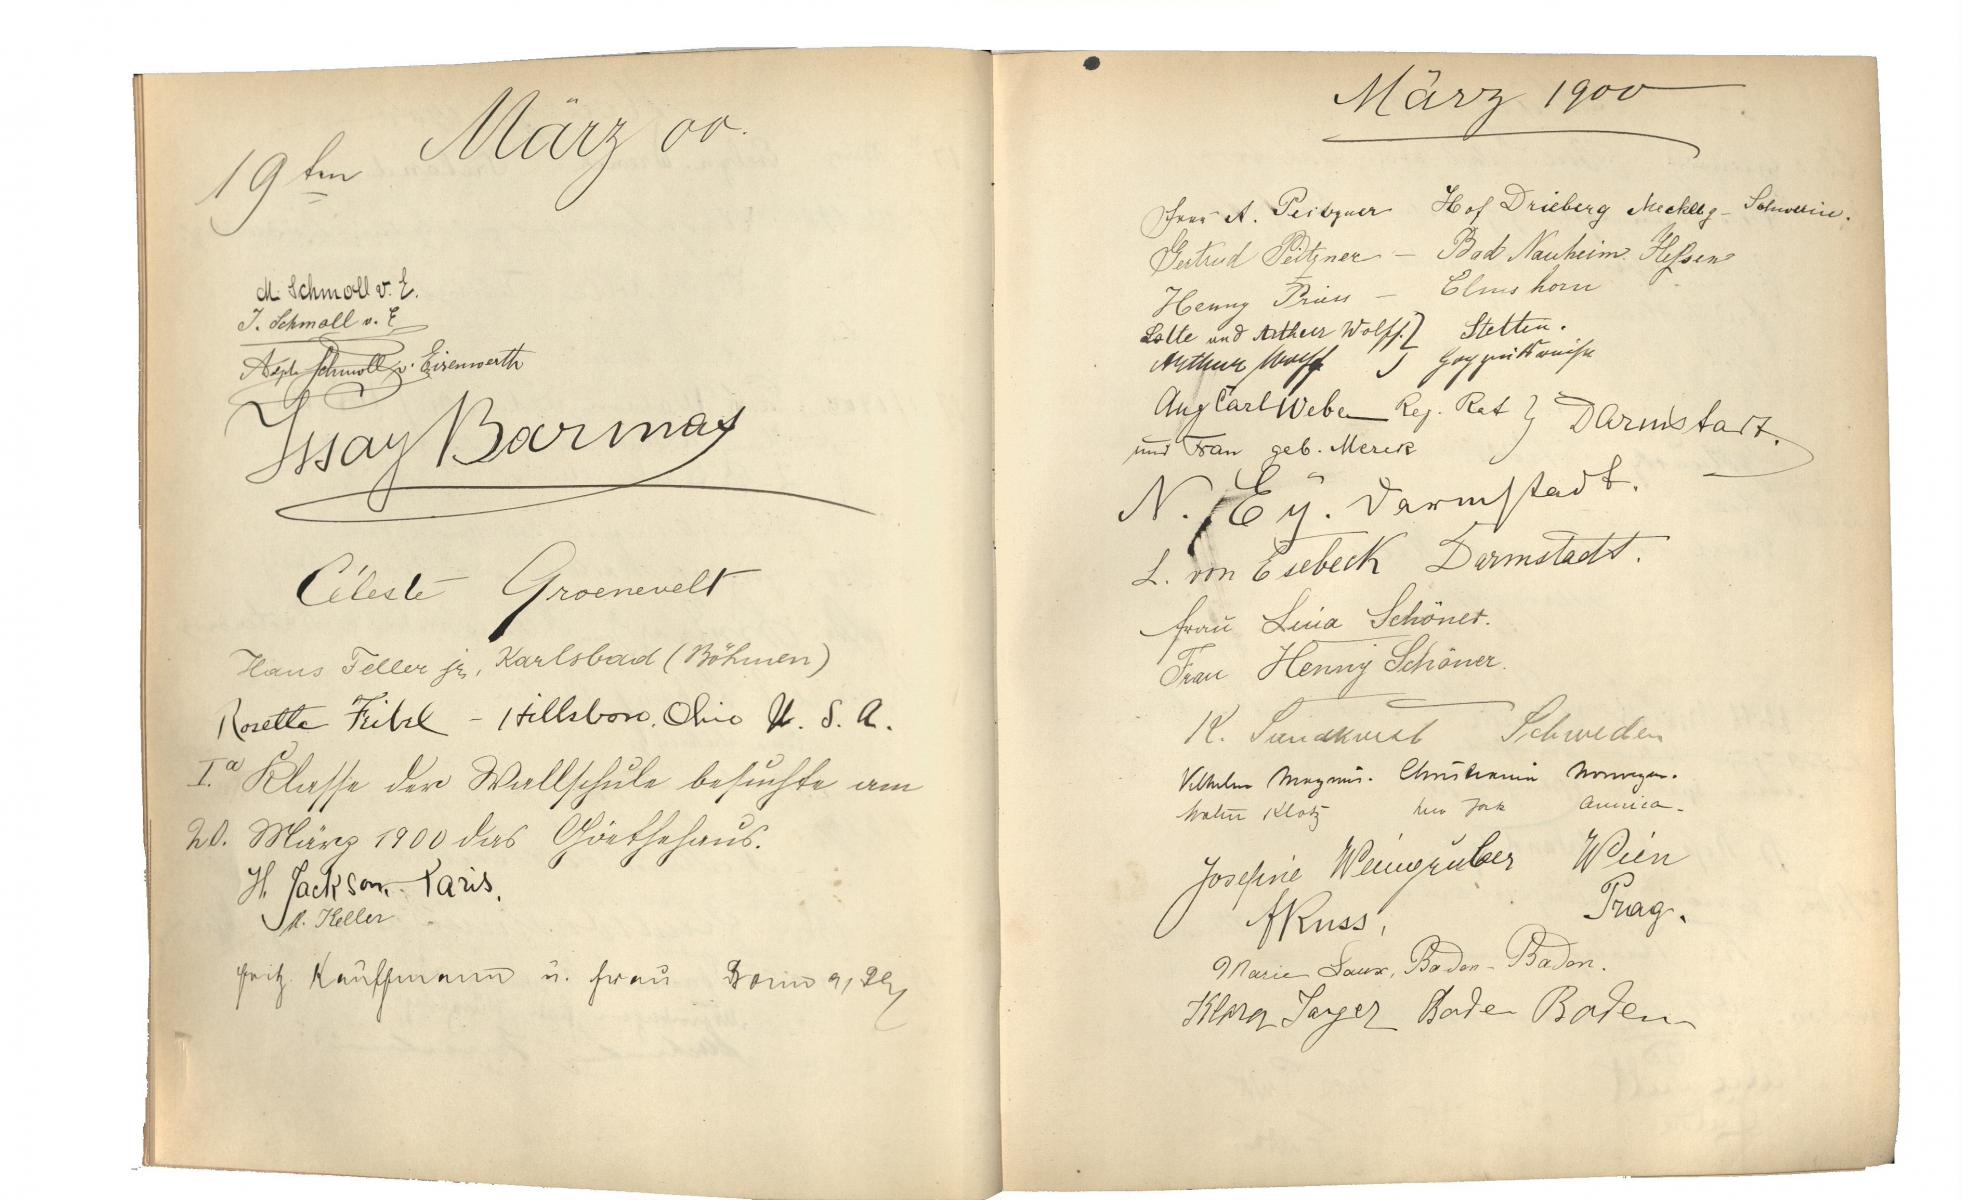 März 00.
19ten
M. Schmoll v. E.
J. Schmoll v. E
Schmoll v. Eisenwerth
Issay Barmas
Céleste Groenevelt
Hans Feller jr, Karlsbad (Böhmen)
Rosette Feibel - Hillsboro, Ohio U. S. A.
I.a Klasse der Wallschule besuchte am
20. März 1900 das Göethehaus.
H. Jackson. Paris.
A. Heller
Fritz Kauffmann u. Frau
März 1900
Frau A. Peitzner Hof Drieberg Mecklbg - Schwerin.
Gertrud Peitzner - Bad Nauheim. Hessen
Henny Prien - Elmshorn
Lotte und Arthur Wolff. Stettin.
Arthur Wolff
Aug Carl Weber Reg. Rat } Darmstadt.
und Frau geb. Merck
N. Ey. Darmstadt.
L. von Esebeck Darmstadt.
Frau Lina Schöner.
Frau Henny Schöner.
K. Sundkvist Schweden
Vilhelm Magnus. Christiania Norwegen.
Walter Klotz New York America -
Josefine Weingruber Wien
A Kuss, Prag.
Marie Laux, Baden - Baden.
Klara Baden Baden